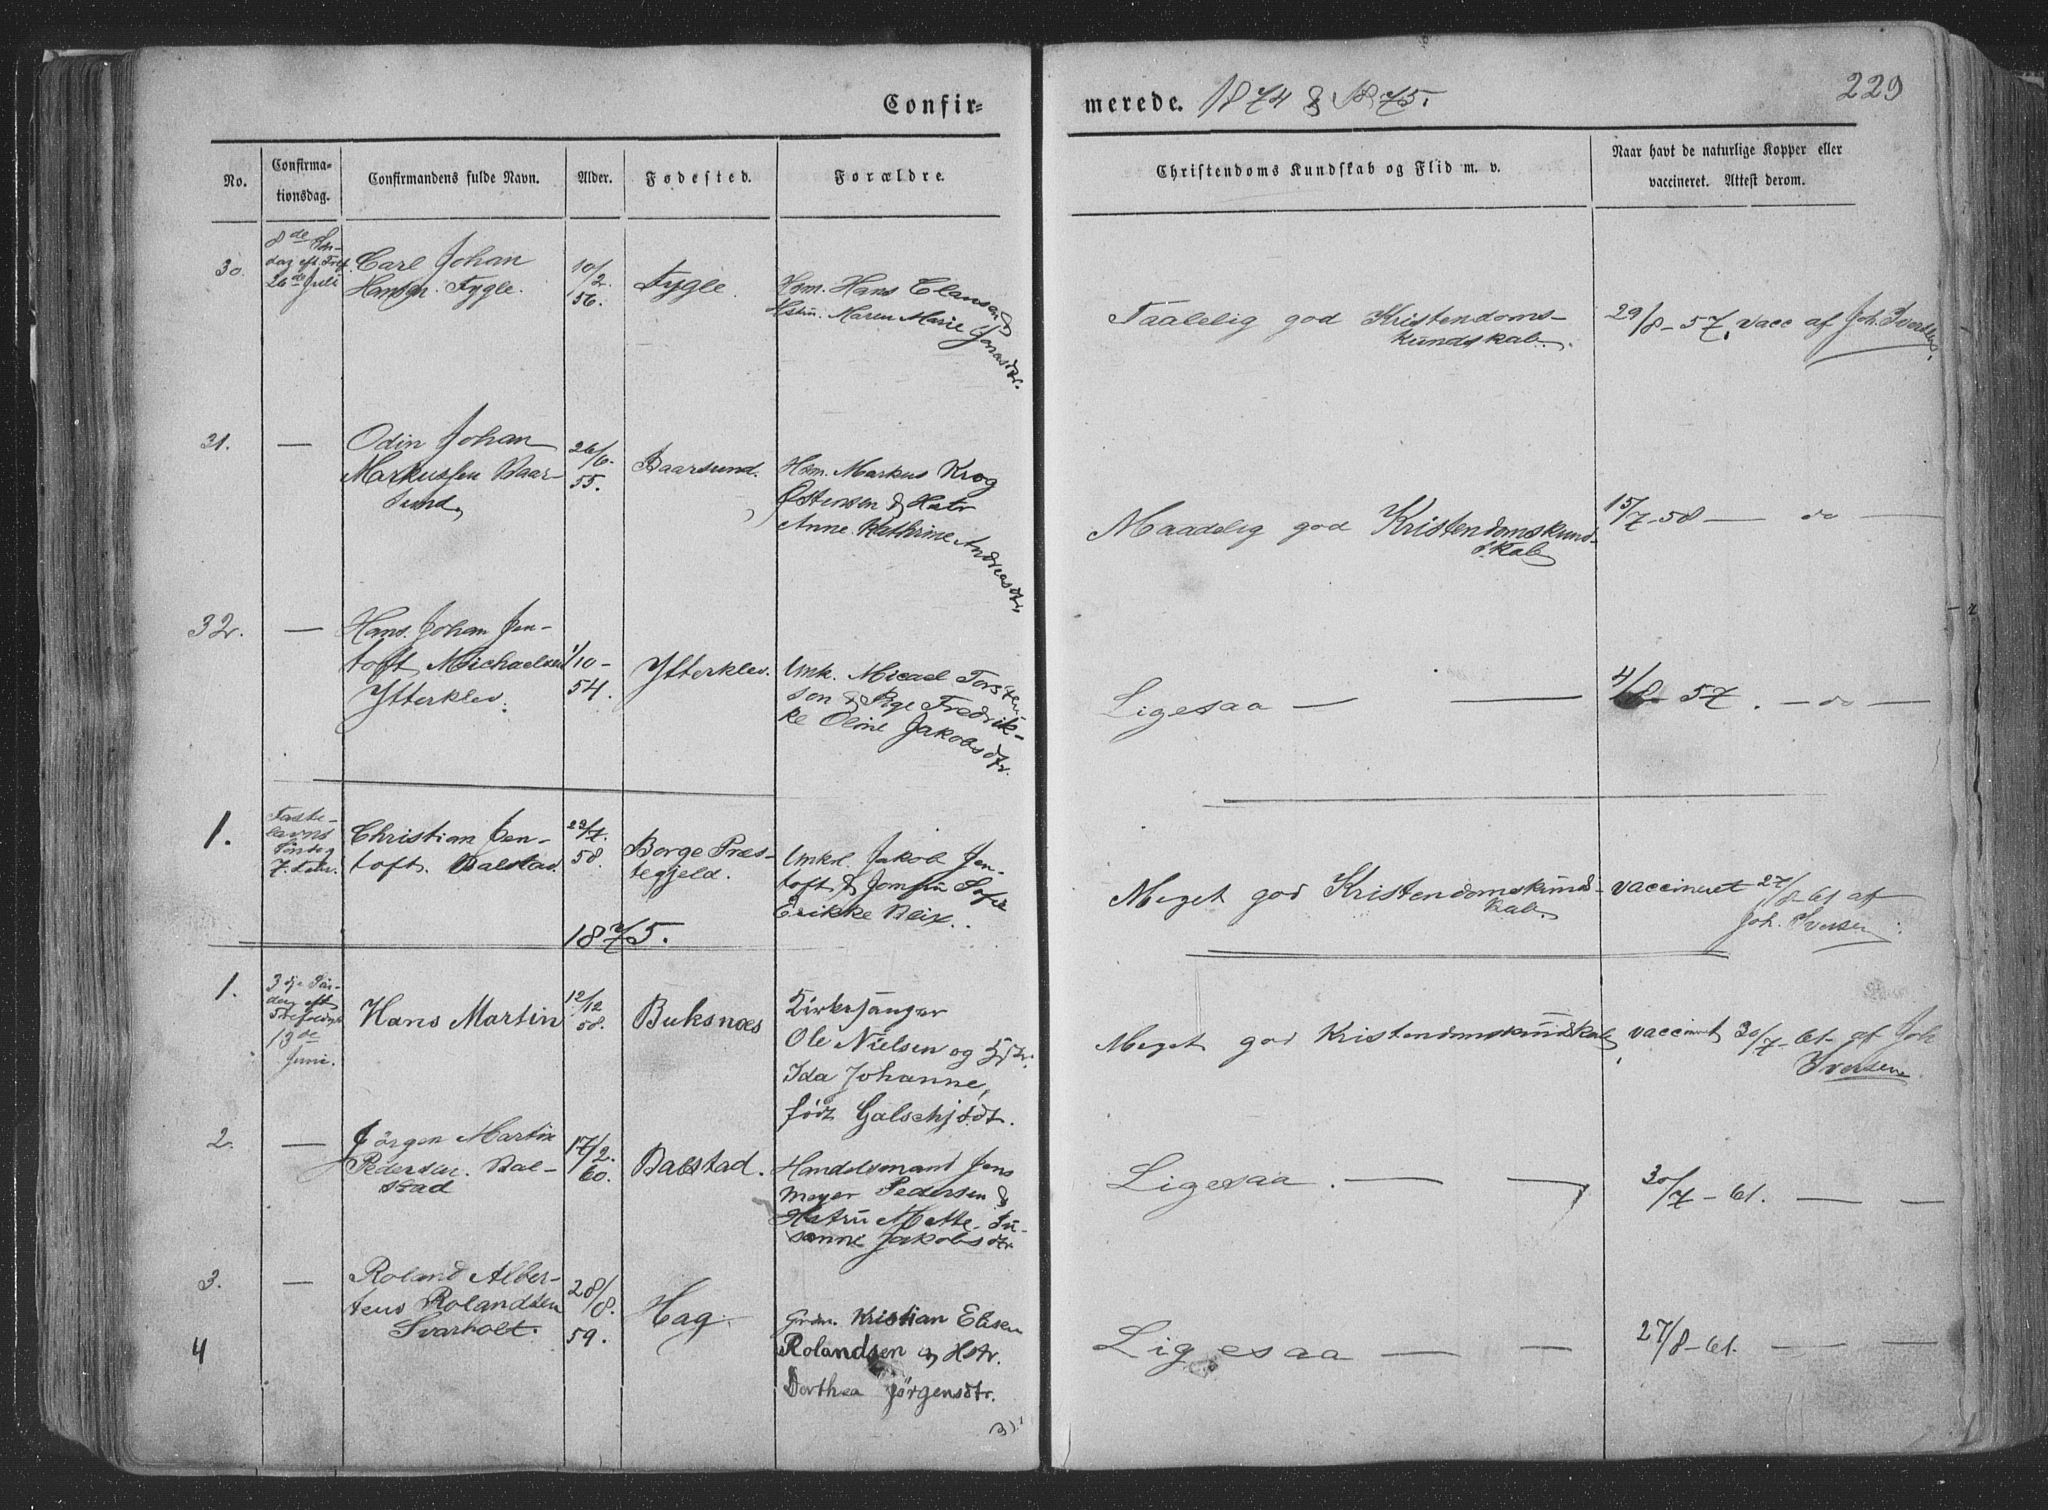 Confir-
merede. 1874 & 1875.
229
No.
Confirma-
tionsdag.
Confirmandens fulde Navn.
Alder.
Fødested.
Forældre.
Christendoms Kundskab og Flid m. v.
Naar havt de naturlige Kopper eller
vaccineret. Attest derom.
30.
8de Søn-
dag eft. Tref.
26de Juli
Carl Johan
Hansen Fygle.
10/2
56.
Fygle.
Hsm. Hans Clausen &
Hstru. Maren Marie Jonasdtr.
Taalelig god Kristendoms-
kundskab.
29/8-57. vacc af Joh. Iversen.
31.
—
Odin Johan
Markussen Baar-
sund
26/6-
55.
Baarsund.
Hsm. Markus Krog
Østensen & Hstr
Anne Kathrine Andreasdtr.
Maadelig god Kristendomskund-
skab
15/7-58 — do —
32.
—
Hans Johan Jen-
toft Michaelsen
Ytterklev.
1/10-
54.
Ytterklev.
Umk. Micael Torsten-
son & Pige Fredrik-
ke Oline Jakobsdtr.
Ligesaa — —
4/8-57. — do —
1.
Faste-
lavns
Søndag
7. Febr.
Christian Jen-
toft. Balstad.
22/7.
58.
Borge Præs-
tegjeld.
Umkl Jakob Jen-
toft & Jomfru Sofie
Erikke Blix.
Meget god Kristendomskund-
skab
vaccineret 27/8-61 af
Joh. Iversen
1875.
1.
3dje Søn-
dag eft
Trefoldigh
13de
Juni.
Hans Martin
12/12
58.
Buksnæs
Kirkesanger
Ole Nielsen og Hstr.
Ida Johanne,
født Galschjødt.
Meget god Kristendomskundskab
vaccineret 30/7-61 af Joh
Iversen
2.
—
Jørgen Martin
Pedersen. Bal-
stad
17/2.
60.
Balstad.
Handelsmand Jens
Meyer Pedersen &
Hstru Mette Su-
sanne Jakobsdtr
Ligesaa. — —
30/7-61. — —
3.
—
Roland Alber-
teus Rolandsen
Svarholt.
28/8.
59.
Hag.
Grdm. Kristian Elisen
Rolandsen og Hstr.
Dorthea Jørgensdtr.
Ligesaa — — —
27/8-61. — —
4